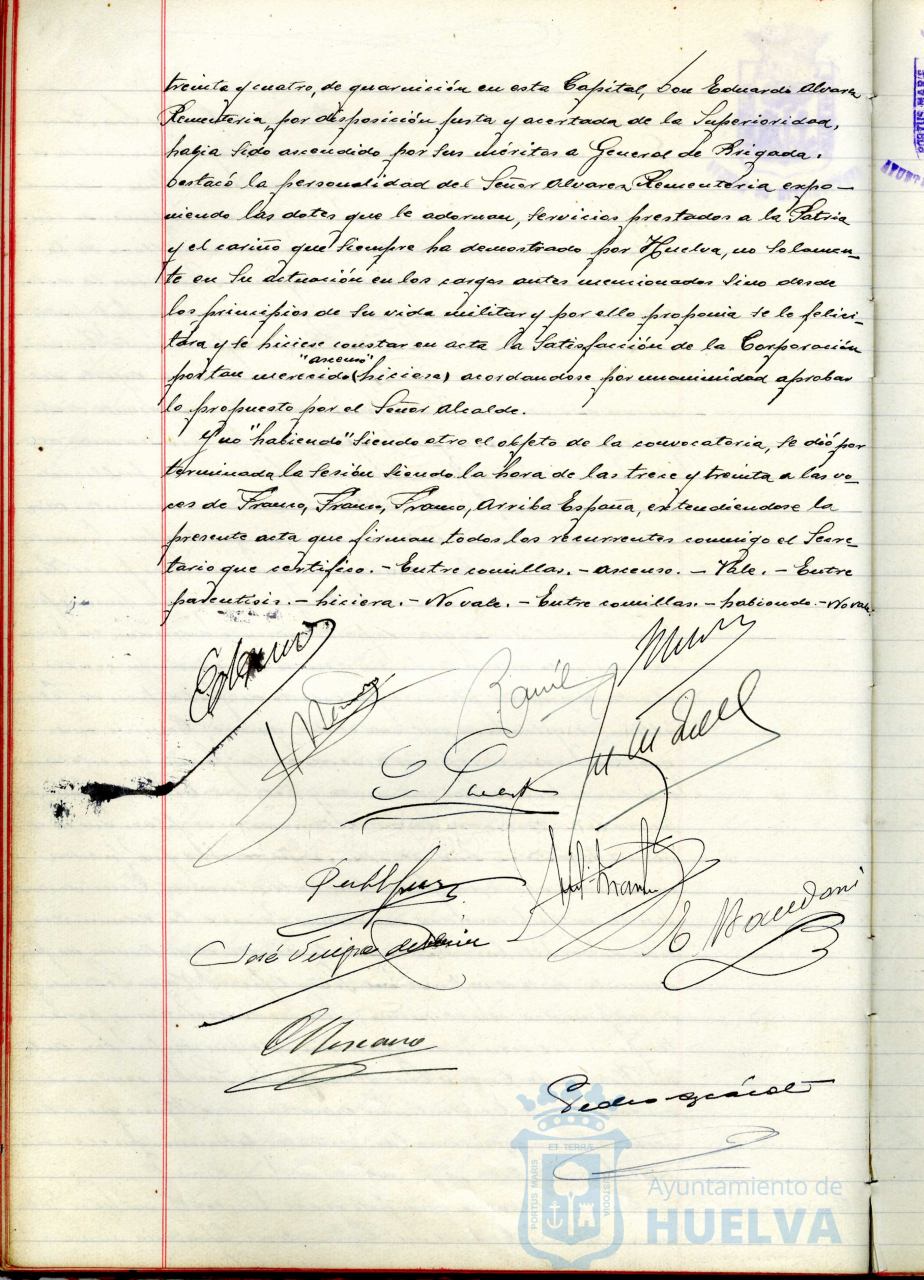 treinta y cuatro, de guarnición en esta Capital, Don Eduardo Alvarez
Rementeria, por disposición justa y acertada de la Superioridad,
habia sido ascendido por sus méritos a General de Brigada.
Destacó la personalidad del Señor Alvarez Rementeria expo-
niendo las dotes que le adornan, servicios prestados a la Patria
y el cariño que siempre ha demostrado por Huelva, no solamen-
te en su actuación en los cargos antes mencionados sino desde
los principios de su vida militar y por ello proponia se le felici-
tara y se hiciese constar en acta la satisfacción de la Corporación
"ascenso"
por tan merecido (hiciese) acordandose por unanimidad aprobar
lo propuesto por el Señor Alcalde.
Y no "habiendo" siendo otro el objeto de la convocatoria, se dió por
terminada la sesión siendo la hora de las trece y treinta a las vo-
ces de Franco, Franco, Franco, Arriba España, extendiendose la
presente acta que firman todos los recurrentes conmigo el Secre-
tario que certifico.- Entre comillas.- ascenso.- Vale.- Entre
parentisis.- hiciera.- No vale.- Entre comillas.- habiendo.- No vale.
José
PORTUS MARIS
ET TERRÆ
CUSTODIA
Ayuntamiento de
HUELVA